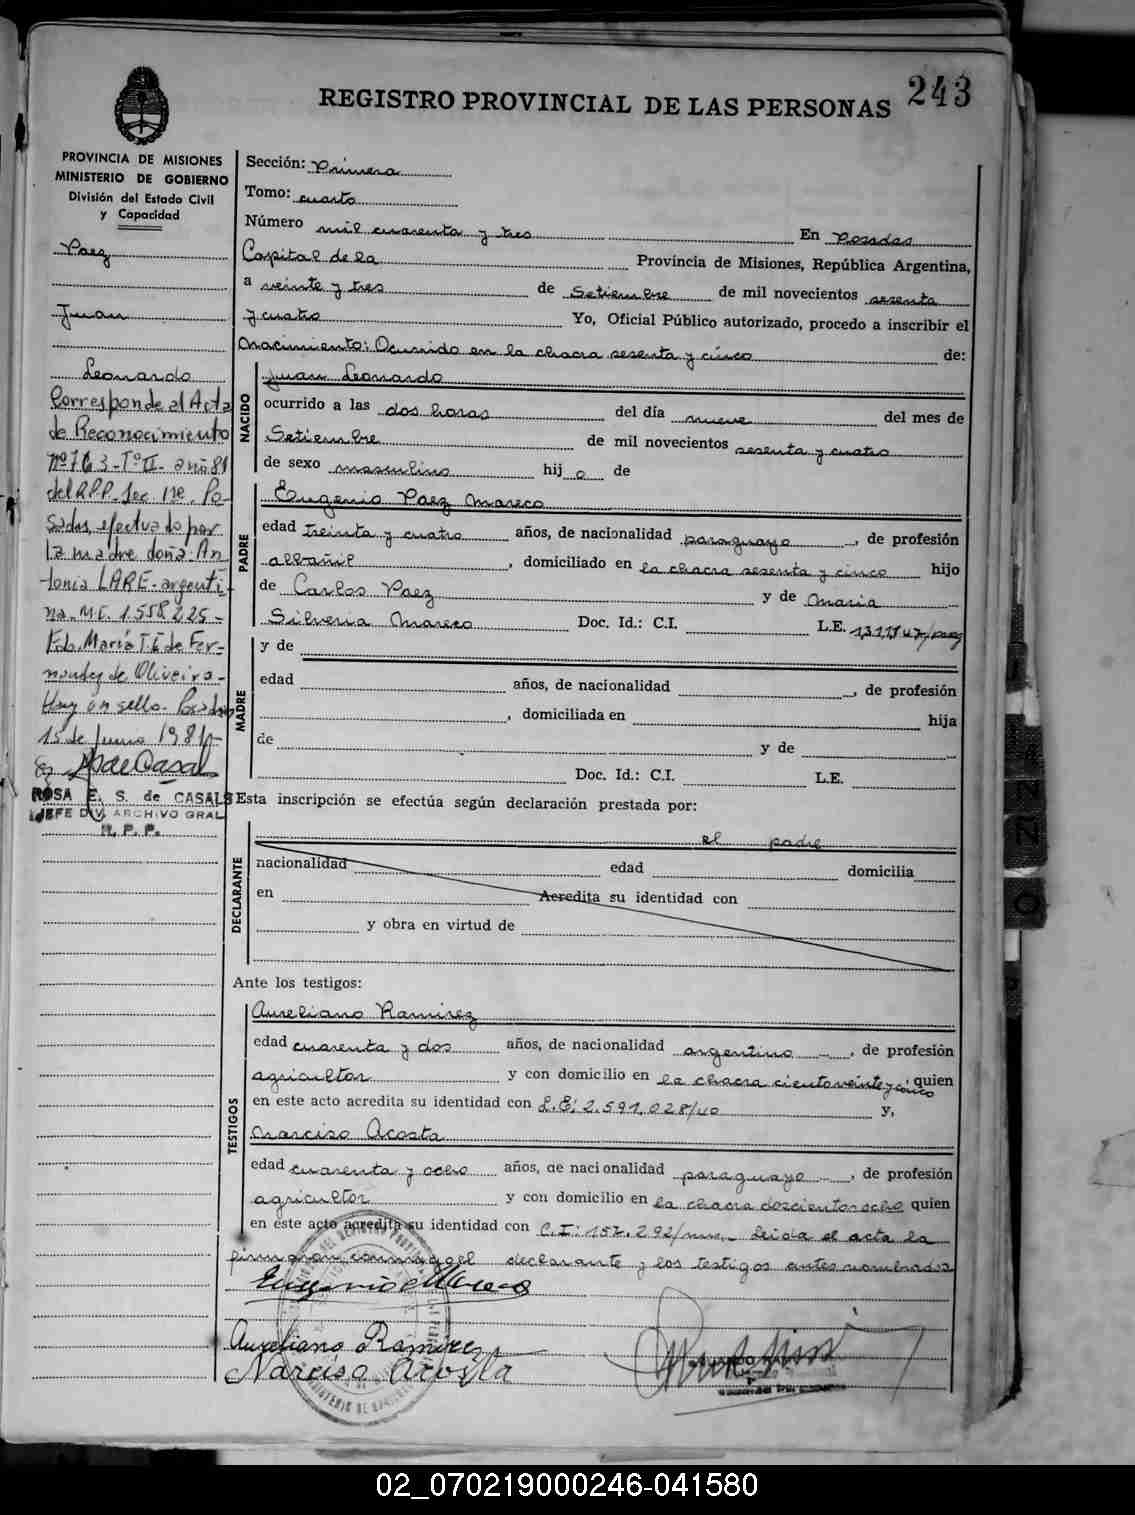 243
REGISTRO PROVINCIAL DE LAS PERSONAS
PROVINCIA DE MISIONES
MINISTERIO DE GOBIERNO
División del Estado Civil
y Capacidad
Paez
Juan
Leonardo
Corresponde al Acta
de Reconocimiento
Nº 763-Tº II- año 81
del R.P.P. Sec 1re. Po-
sadas, efectuado por
la madre doña: An
tonia LARE- argenti-
na. M.I. 1.558.225-
Fdo. María T. E de Fer-
nandez de Oliveira-
Hay un sello. Posadas
15 de Junio 1981-
ROSA E. S. de CASALS
JEFE DIV. ARCHIVO GRAL
R. P. P.
Sección: Primera
Tomo: cuarto
Número mil cuarenta y tres En Posadas
Capital de la Provincia de Misiones, República Argentina,
a veinte y tres de Setiembre de mil novecientos sesenta
y cuatro Yo, Oficial Público autorizado, procedo a inscribir el
Nacimiento: Ocurrido en la chacra sesenta y cinco de:
NACIDO
Juan Leonardo
ocurrido a las dos horas del día nueve del mes de
Setiembre de mil novecientos sesenta y cuatro
de sexo masculino hij o de
PADRE
Eugenio Paez Mareco
edad treinta y cuatro años, de nacionalidad paraguayo, de profesión
albañil, domiciliado en la chacra sesenta y cinco hijo
de Carlos Paez y de Maria
Silveria Mareco Doc. Id.: C.I. L.E.
MADRE
y de
edad años, de nacionalidad , de profesión
, domiciliada en hija
de y de
Doc. Id.: C.I. L.E.
Esta inscripción se efectúa según declaración prestada por:
DECLARANTE
el padre
nacionalidad edad domicilia
en Acredita su identidad con
y obra en virtud de
Ante los testigos:
TESTIGOS
Aureliano Ramirez
edad cuarenta y dos años, de nacionalidad argentino, de profesión
agricultor y con domicilio en la chacra ciento veinte y cinco quien
en este acto acredita su identidad con L.E: 2.591.028/40 y,
Narciso Acosta
edad cuarenta y ocho años, de nacionalidad paraguayo, de profesión
agricultor y con domicilio en la chacra doscientos ocho quien
en este acto acredita su identidad con C.I: 157.292/mns.- Leida el acta la
firmaron conmigo el declarante y los testigos antes nombrados
Eugenio Mareco
Aureliano Ramirez
Narciso Acosta
02_070219000246-041580